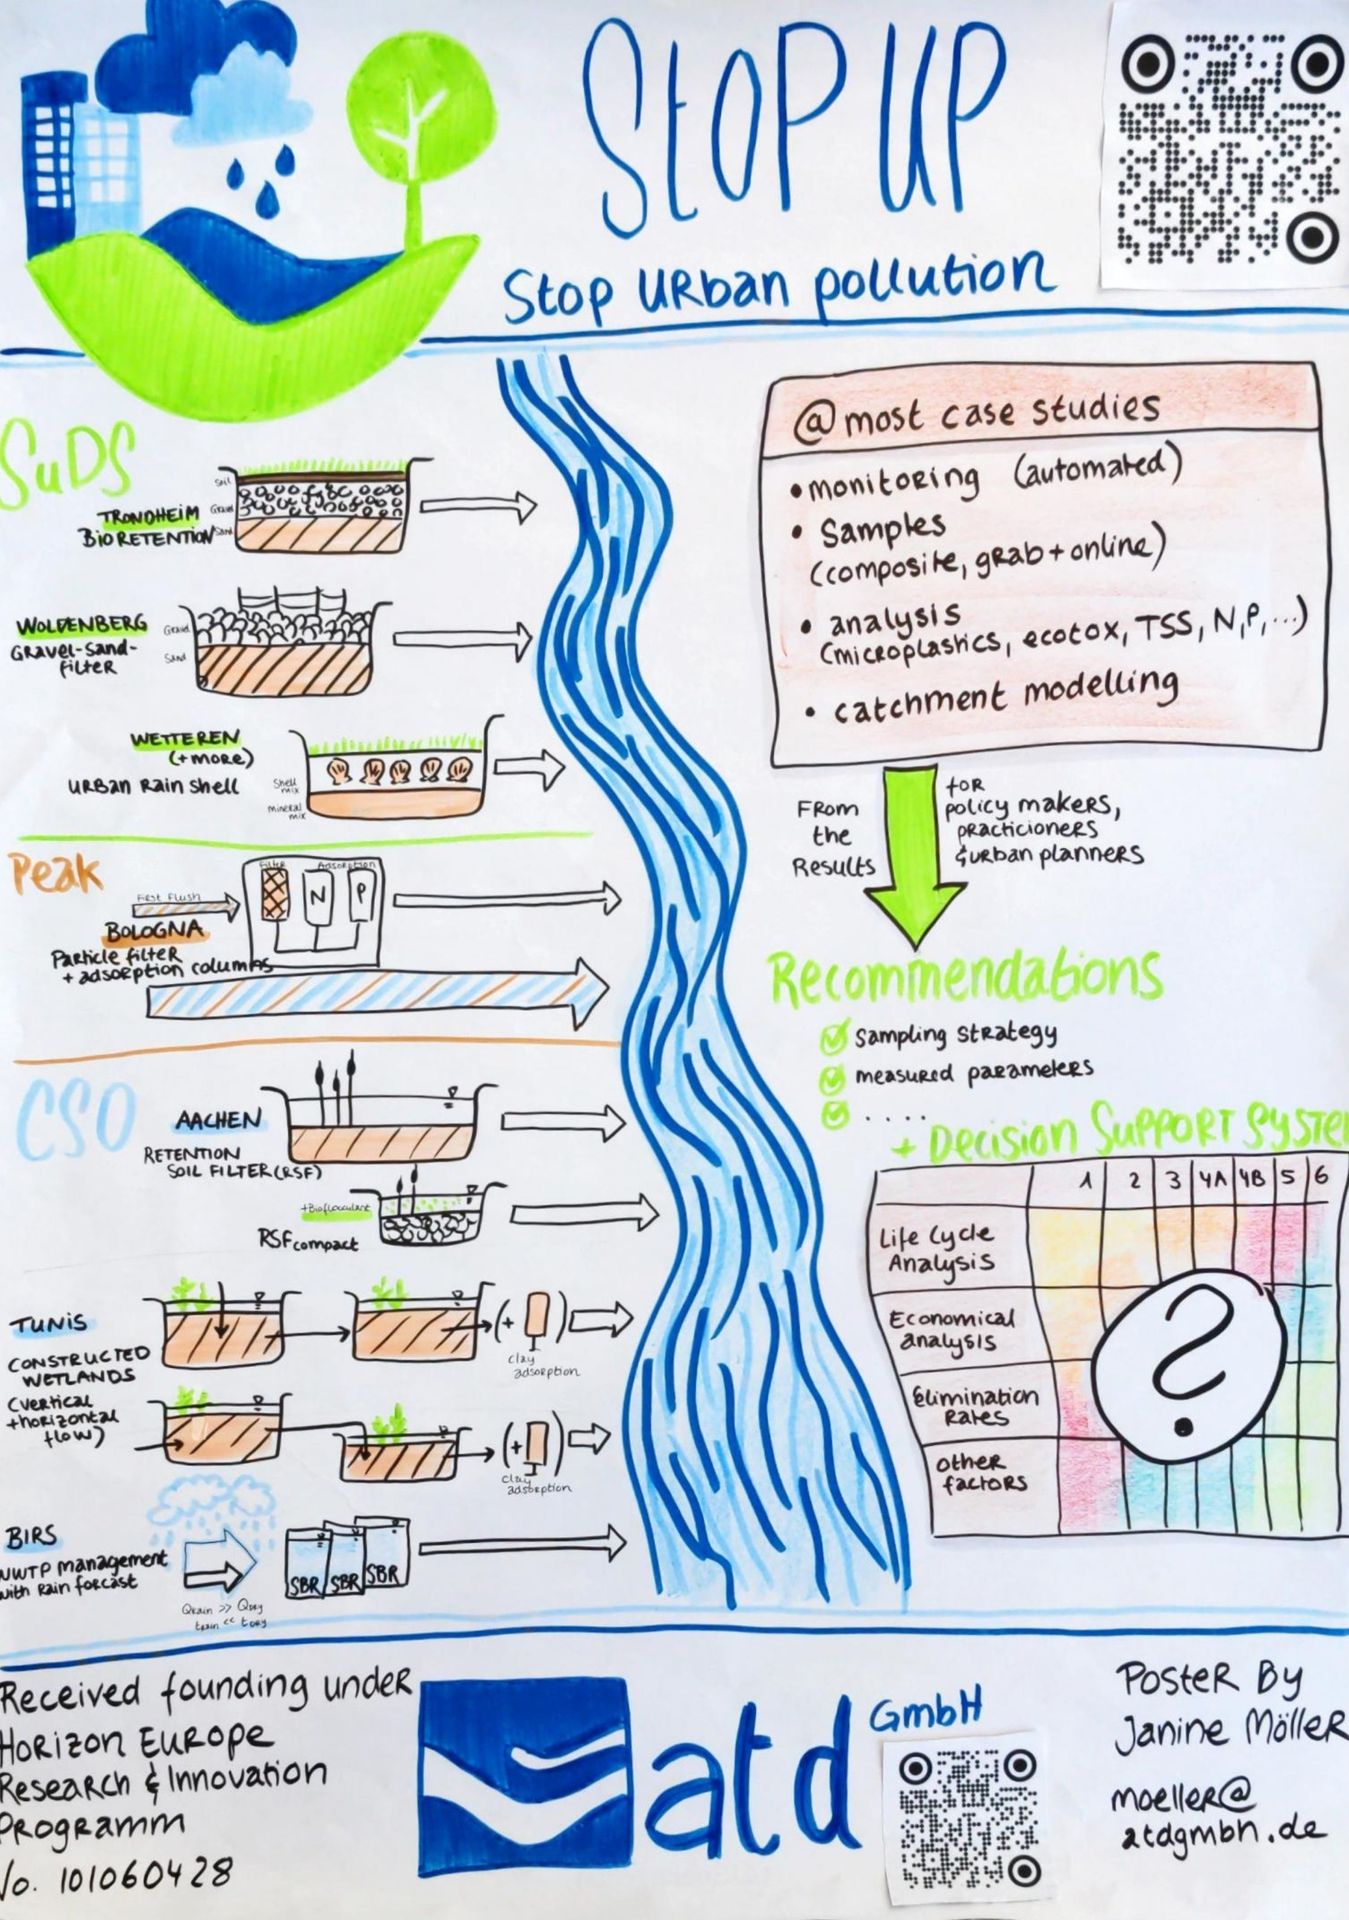 StOP UP
Stop Urban pollution
SuDS
Soil
Gravel
Sand
TRONDHEIM
BIORETENTION
WOLDENBERG
Gravel-Sand-
Filter
Gravel
Sand
WETTEREN
(+more)
URBan Rain shell
Shell
mix
mineral
mix
Peak
First Flush
Filter
Adsorption
N
P
BOLOGNA
Particle filter
+ adsorption columns
CSO
AACHEN
RETENTION
SOIL FILTER (RSF)
+Bioflocculant
RSF compact
TUNIS
CONSTRUCTED
WETLANDS
(vertical
+horizontal
flow)
(+ )
clay
adsorption
(+ )
clay
adsorption
BIRS
WWTP management
with rain forcast
Qrain >> Qdry
train << tdry
SBR
SBR
SBR
@ most case studies
• monitoring (automated)
• Samples
(composite, grab + online)
• analysis
(microplastics, ecotox, TSS, N, P, ...)
• catchment modelling
From
the
Results
for
policy makers,
practicioners
& urban planners
Recommendations
sampling strategy
measured parameters
....
+ Decision Support System
1 2 3 4A 4B 5 6
Life Cycle
Analysis
Economical
analysis
Elimination
Rates
other
factors
?
Received founding under
Horizon Europe
Research & Innovation
Programm
No. 101060428
atd GmbH
Poster By
Janine Möller
moeller@
atdgmbh.de